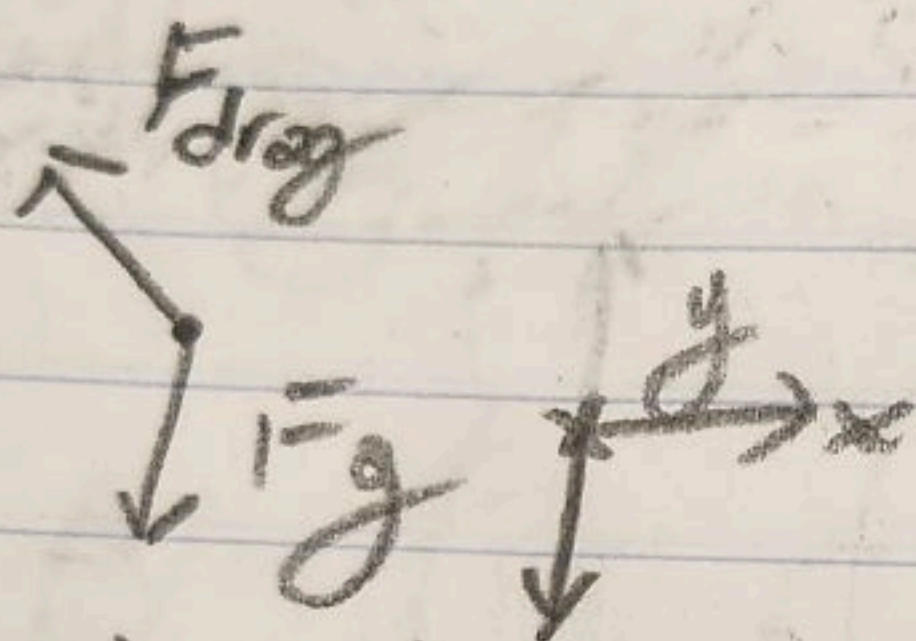 F drag
F g
y
x